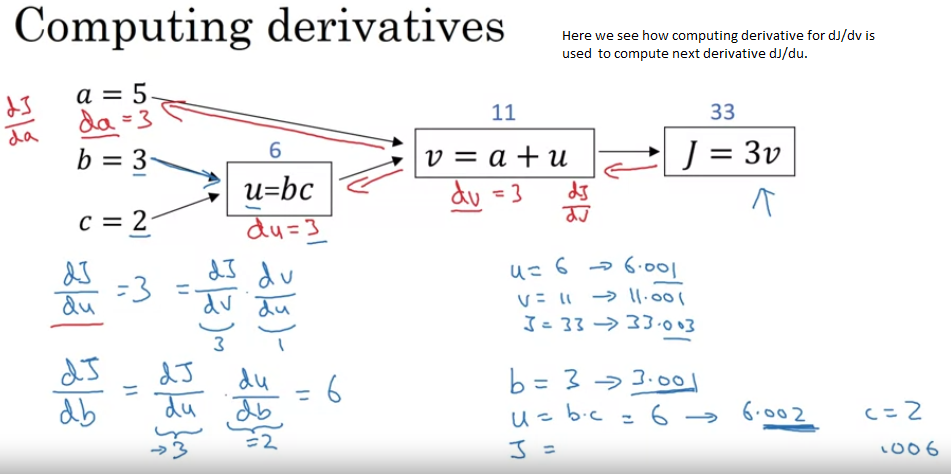 Computing derivatives
Here we see how computing derivative for dJ/dv is
used to compute next derivative dJ/du.
dJ/da
a = 5
da = 3
b = 3
c = 2
6
u=bc
du=3
11
v = a + u
dv = 3
dJ/dv
33
J = 3v
dJ/du = 3 = dJ/dv · dv/du
3 1
dJ/db = dJ/du · du/db = 6
→3 =2
u = 6 → 6.001
v = 11 → 11.001
J = 33 → 33.003
b = 3 → 3.001
u = b·c = 6 → 6.002 c = 2
J = .006